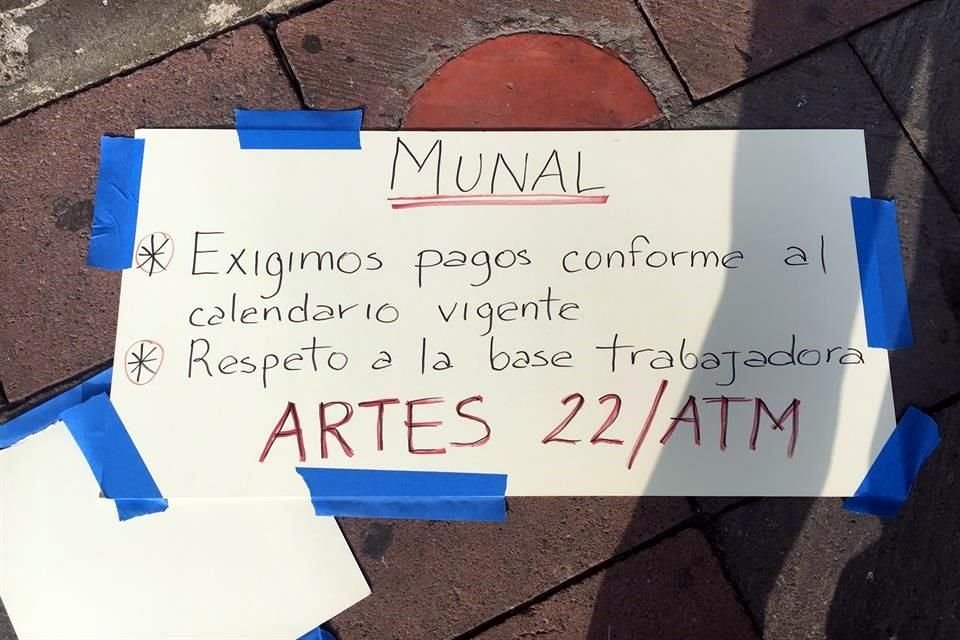 MUNAL
* Exigimos pagos conforme al
calendario vigente
* Respeto a la base trabajadora
ARTES 22/ATM